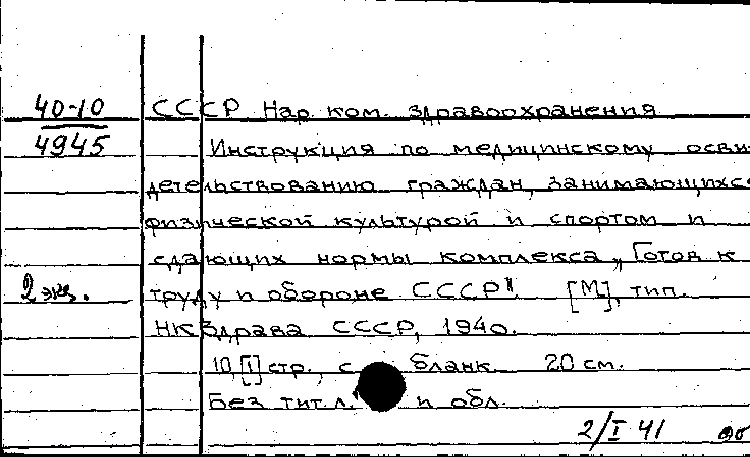 40-10 СССР Нар. ком. здравоохранения
4945 Инструкция по медицинскому осви-
детельствованию граждан, занимающихся
физической культурой и спортом и
сдающих нормы комплекса „Готов к
2 экз. труду и обороне СССР". [М], тип.
НКЗдрава СССР, 1940.
10,[1] стр., с бланк. 20 см.
Без тит. л. и обл.
2/I 41